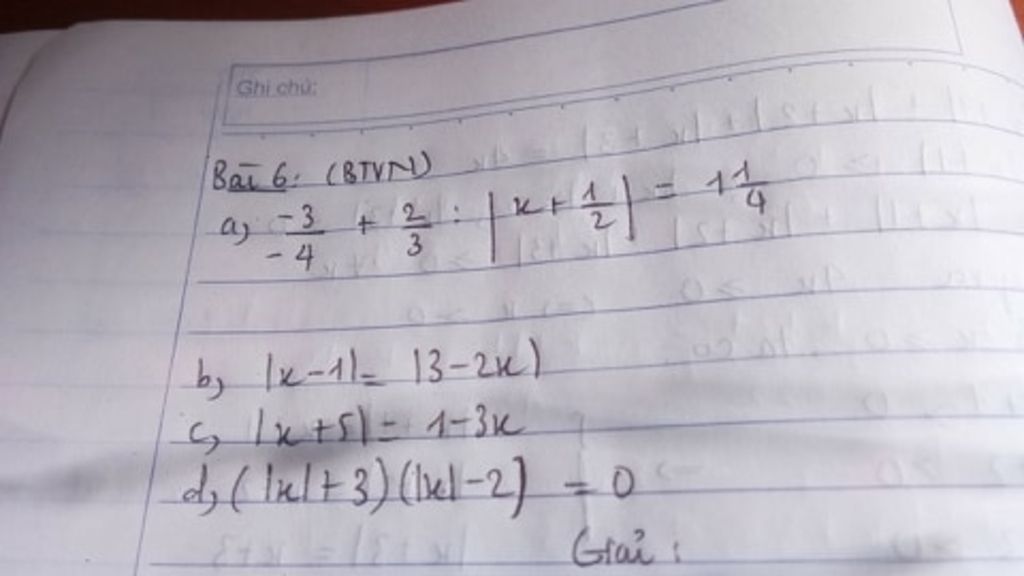 Ghi chú:
Bài 6: (BTVN)
a, -3/-4 + 2/3 : |x + 1/2| = 1 1/4
b, |x-1| = |3-2x|
c, |x+5| = 1-3x
d, (|x|+3)(|x|-2) = 0
Giải: